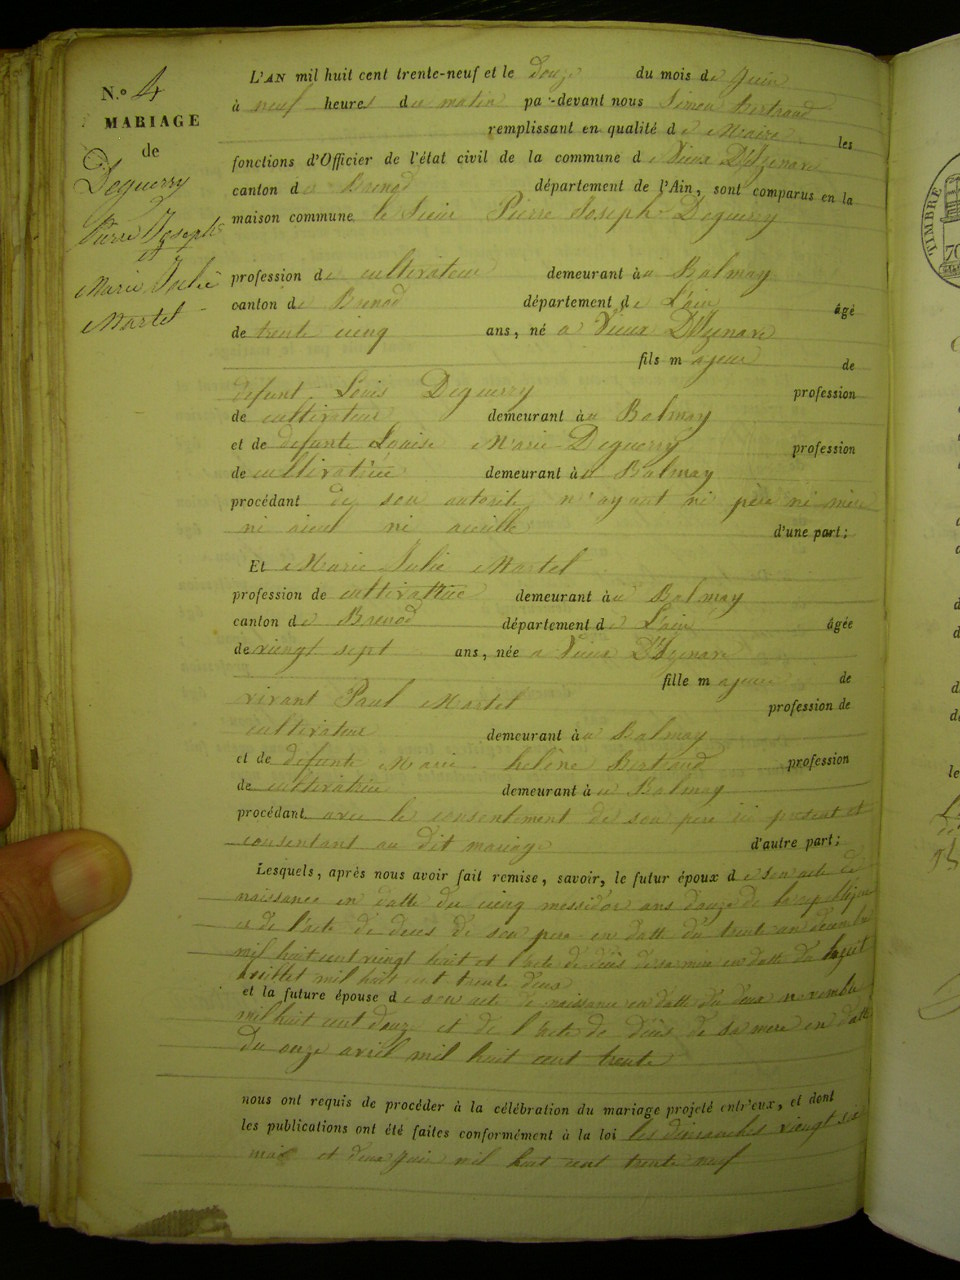 N.º 4
MARIAGE
de
Deguerry
Pierre Joseph
et
Marie Julie
Martel
L'AN mil huit cent trente-neuf et le douze du mois de Juin
à neuf heures du matin par-devant nous Simon Bertrand
remplissant en qualité de Maire les
fonctions d'Officier de l'état civil de la commune de Vieux D'Izenave
canton de Brenod département de l'Ain, sont comparus en la
maison commune le Sieur Pierre Joseph Deguerry
profession de cultivateur demeurant à a Balmay
canton de Brenod département de L'ain âgé
de trente cinq ans, né a Vieux D'Izenave
fils majeur de
défunt Louis Deguerry profession
de cultivateur demeurant à a Balmay
et de défunte Louise Marie Deguerry profession
de cultivatrice demeurant à a Balmay
procédant de son autorité n'ayant ni père ni mère
ni aieul ni aieulle d'une part;
Et Marie Julie Martel
profession de cultivatrice demeurant à a Balmay
canton de Brenod département de L'ain âgée
de vingt sept ans, née a Vieux D'Izenave
fille majeure de
vivant Paul Martel profession de
cultivateur demeurant à a Balmay
et de défunte Marie helène Bertrand profession
de cultivatrice demeurant à a Balmay
procédant avec le consentement de son père ici présent et
consentant au dit mariage d'autre part;
Lesquels, après nous avoir fait remise, savoir, le futur époux de son acte de
naissance en datte du cinq messidor ans douze de la république
et de l'acte de décès de son père en datte du trente un décembre
mil huit cent vingt huit et l'acte de décès de sa mère en datte du huit
juillet mil huit cent trente deux
et la future épouse de son acte de naissance en datte du deux novembre
mil huit cent douze et de l'acte de décès de sa mère en datte
du onze avril mil huit cent trente
nous ont requis de procéder à la célébration du mariage projeté entr'eux, et dont
les publications ont été faites conformément à la loi les dimanches vingt six
mai et deux Juin mil huit cent trente neuf
TIMBRE
70